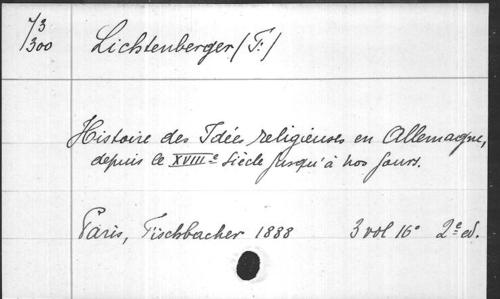 73
300
Lichtenberger (F.)
Histoire des Idées religieuses en Allemagne,
depuis le XVIIIe Siècle jusqu'à nos jours.
Paris, Fischbacher 1888 3 vol 16° 2e ed.